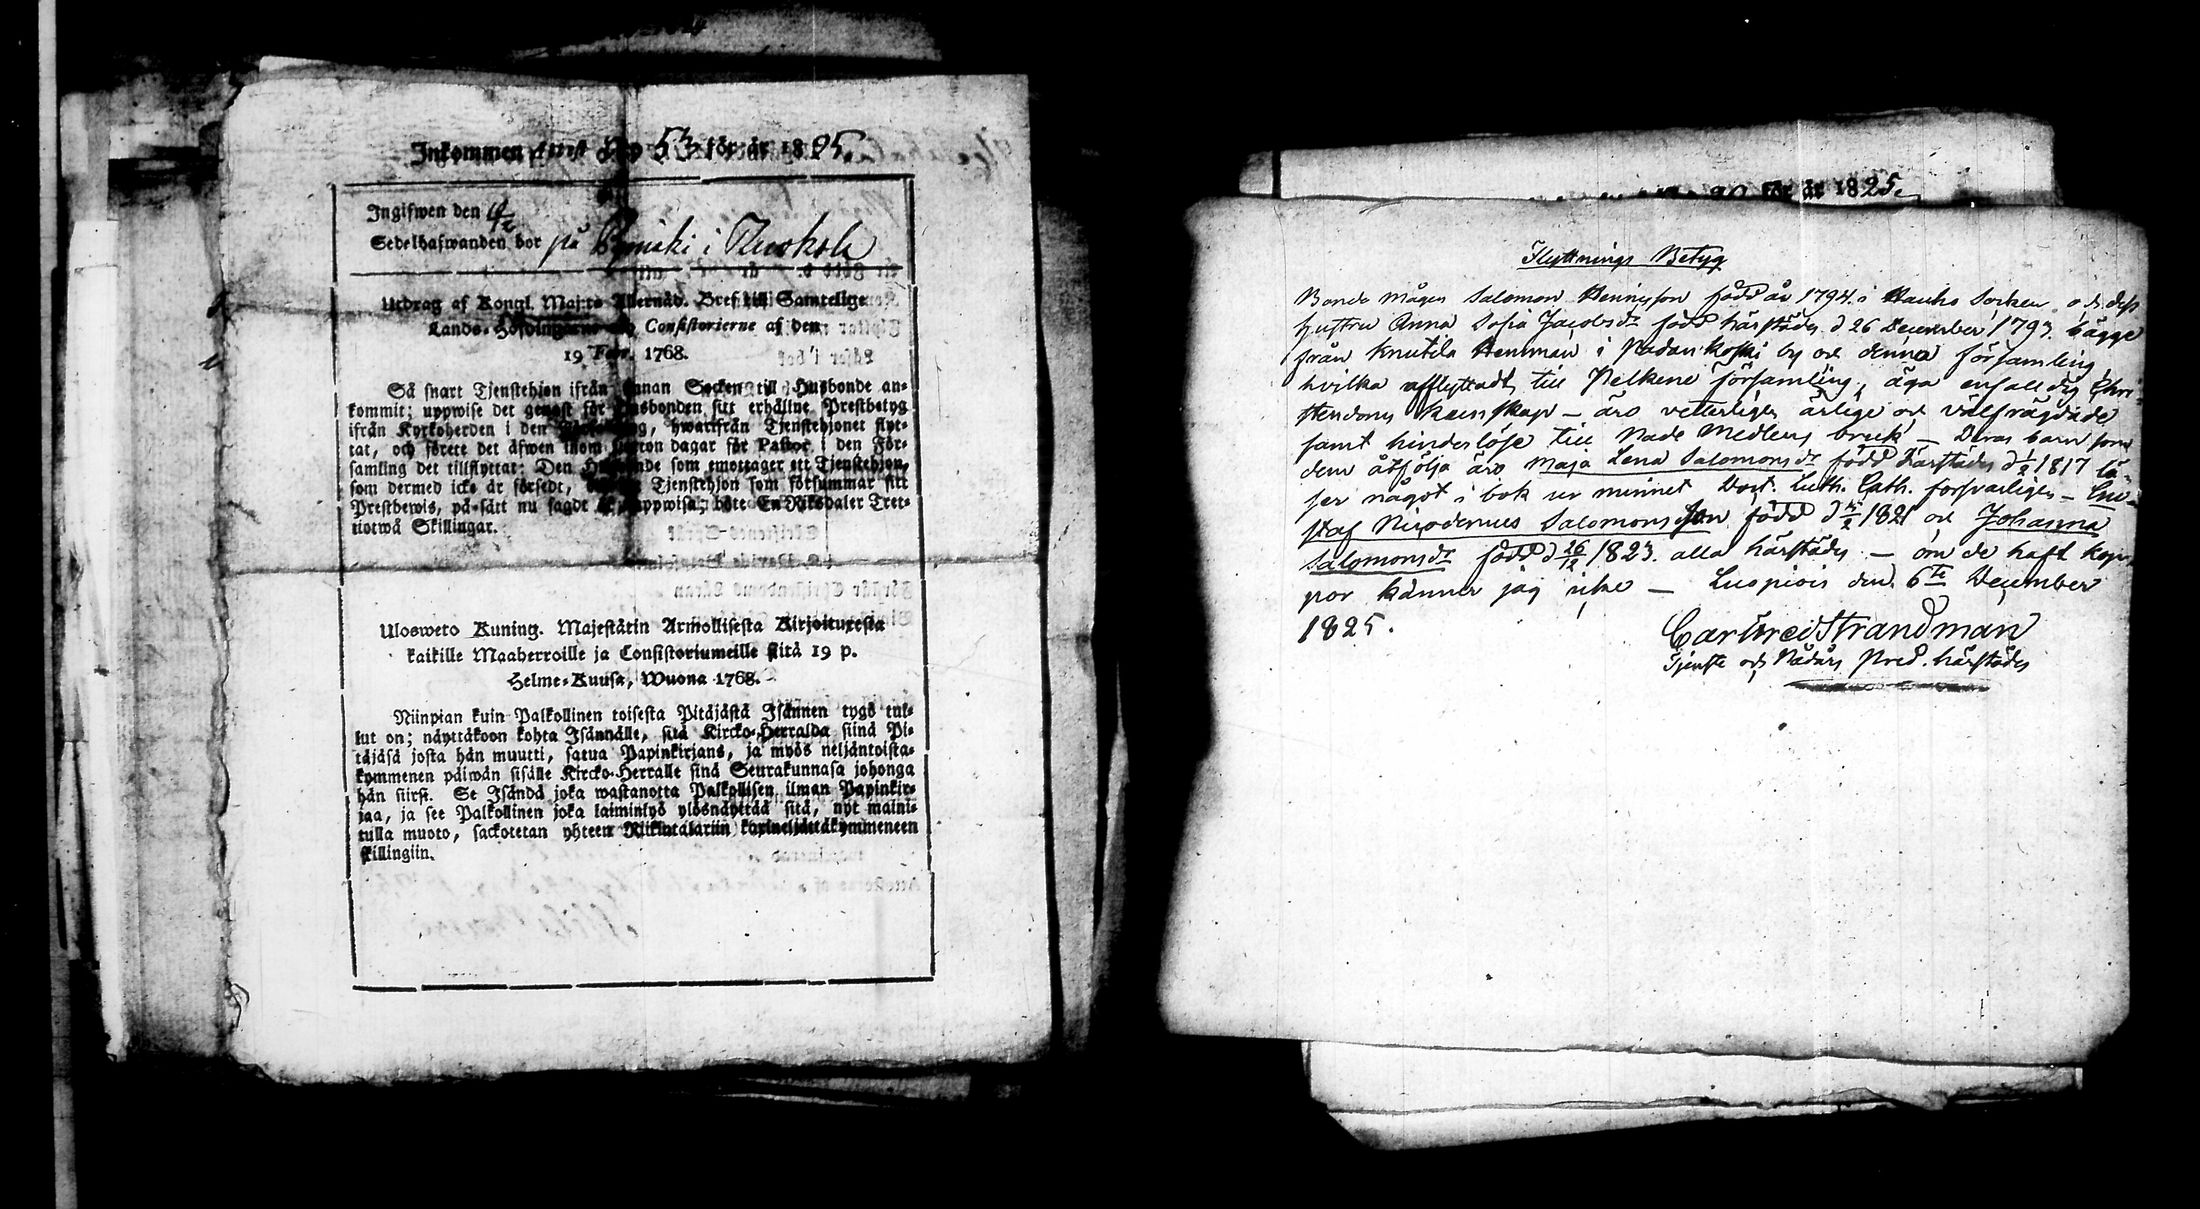 Inkommen No 53 för år 1825.
Ingifwen den
Sedelhafwanden bor på i Kuokola
Utdrag af Kongl. Maj:ts Allernåd. Bref till Samtelige
Lands-Höfdingarne Consistorierne af den
19 Febr. 1768.
Så snart Tjenstehjon ifrån annan Socken till Husbonde an-
kommit; uppwise det genast för Husbonden sitt erhållne Prestbetyg
ifrån Kyrkoherden i den hwarifrån Tjenstehjonet flyt-
tat, och förete det äfwen inom fjorton dagar för Pastor i den För-
samling det tillflyttat: Den Husbonde som emottager ett Tjenstehjon,
som dermed icke är försedt, Tjenstehjon som försummar sitt
Prestbewis, på-sätt nu sagdt är, uppwisa; böte En Riksdaler Tret-
tiotwå Skillingar.
Ulosweto Kuning. Majestätin Armollisesta Kirjoituxesta
kaikille Maaherroille ja Consistoriumeille sitä 19 p.
Helme-Kuusa, Wuona 1768.
Niinpian kuin Palkollinen toisesta Pitäjästä Isännen tygö tul-
lut on; näyttäkoon kohta Isännälle, sitä Kircko-Herralda siinä Pi-
täjäsä josta hän muutti, saatua Papinkirjans, ja myös neljäntoista-
kymmenen päiwän sisälle Kircko-Herralle siinä Seurakunnasa johonga
hän siirsi. Se Isändä joka wastanotta Palkollisen ilman Papinkir-
jaa, ja see Palkollinen joka laiminlyö ylösnäyttää sitä, nyt maini-
tulla muoto, sackotetan yhteen Riikintalariin kaxineljättäkymmeneen
skillingiin.
för år 1825.
Flyttnings Betyg
Bonde Mågen Salomon Henricsson född år 1794. i Hauho Socken och dess
hustru Anna Sofia Jacobsdr född härstädes d 26 December 1793. bägge
från Knutila Hemman i Padankoski by och denna församling
hvilka afflyttadt till Pelkene församling, äga enfalldig Chri-
stendoms kunskap – äro vetterligen ärlige och välfrägdade
samt hinderslöse till Nade Medlens bruk – Deras barn som
dem åtfölja äro Maja Lena Salomonsdr född härstädes d 1/2 1817 lä-
ser något i bok ur minnet Dort. Luth. Cath. forsvarligen – Gu-
staf Nicodemus Salomonsson född d 1821 och Johanna
Salomonsdr född d 26/12 1823. alla härstädes – om de haft kop-
por känner jag icke – Luopiois den 6te December
1825.
Carl Strandman
Tjenste och Nådårs Pred. härstädes